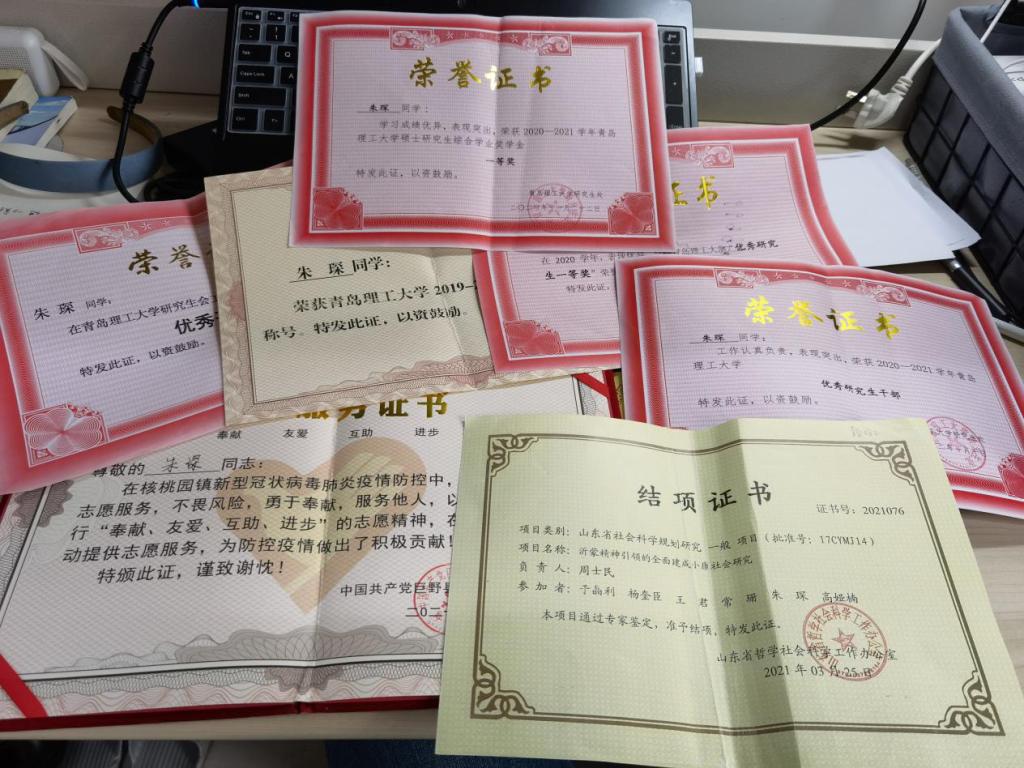 荣誉证书
朱琛 同学：
学习成绩优异，表现突出，荣获 2020—2021 学年青岛
理工大学硕士研究生综合学业奖学金
一等奖
特发此证，以资鼓励。
青岛理工大学研究生处
荣誉
朱琛 同学：
在青岛理工大学研究生会
优秀
特发此证，以资鼓励。
朱 琛 同学：
荣获青岛理工大学 2019-
称号。特发此证，以资鼓励。
证书
在 2020 学年，
理工大学"优秀研究
生一等奖"荣
特发此证，
荣誉证书
朱琛 同学：
工作认真负责，表现突出，荣获 2020—2021 学年青岛
理工大学
优秀研究生干部
特发此证，以资鼓励。
服务证书
奉献 友爱 互助 进步
尊敬的 朱琛 同志：
在核桃园镇新型冠状病毒肺炎疫情防控中，
志愿服务，不畏风险，勇于奉献，服务他人，以
行"奉献、友爱、互助、进步"的志愿精神，在
动提供志愿服务，为防控疫情做出了积极贡献！
特颁此证，谨致谢忱！
中国共产党巨野县
二〇二
结项证书
证书号：2021076
项目类别：山东省社会科学规划研究 一般 项目（批准号：17CYMJ14）
项目名称：沂蒙精神引领的全面建成小康社会研究
负 责 人：周士民
参 加 者：于晶利 杨奎臣 王 君 常 珊 朱 琛 高娅楠
本项目通过专家鉴定，准予结项，特发此证。
山东省哲学社会科学工作办公室
2021 年 03 月 25 日
Caps Lock
Shift
Ctrl